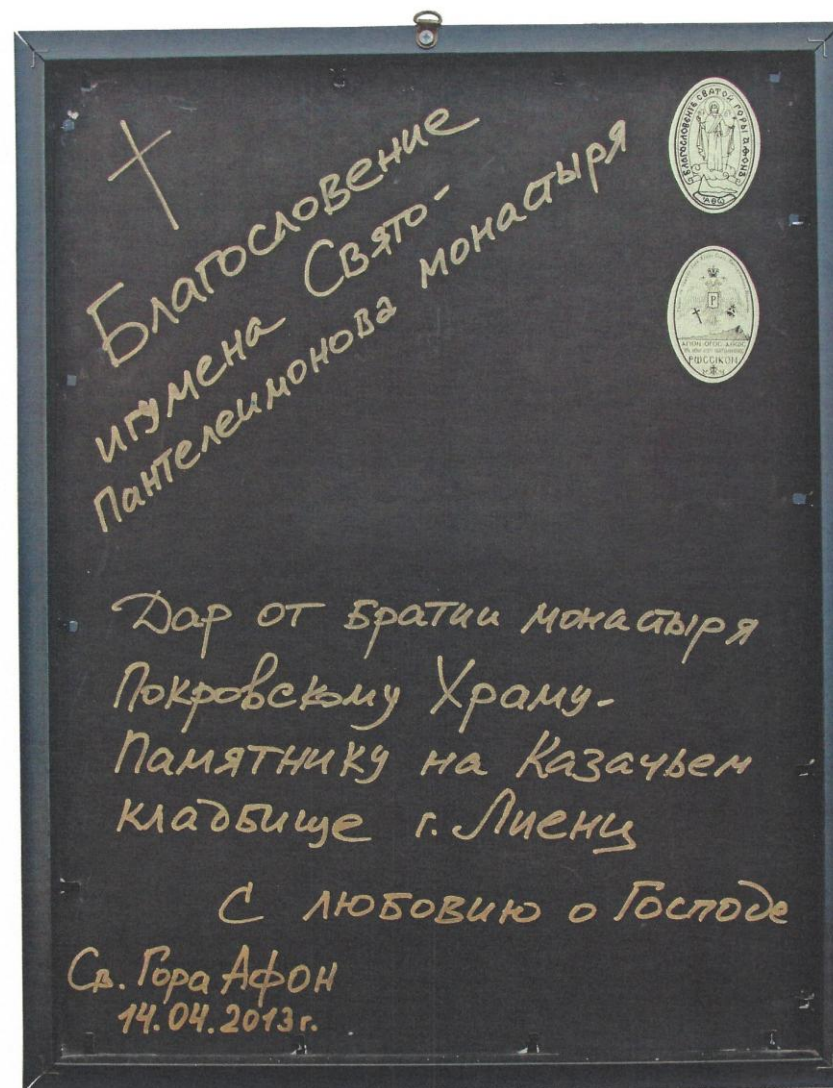 Благословение
игумена Свято-
Пантелеимонова монастыря
БЛАГОСЛОВЕНІЕ СВЯТОЙ ГОРЫ АФОНА
Р
РѠССІКОН
Дар от братии монастыря
Покровскому Храму-
Памятнику на Казачьем
кладбище г. Лиенц
С любовию о Господе
Св. Гора Афон
14.04.2013г.